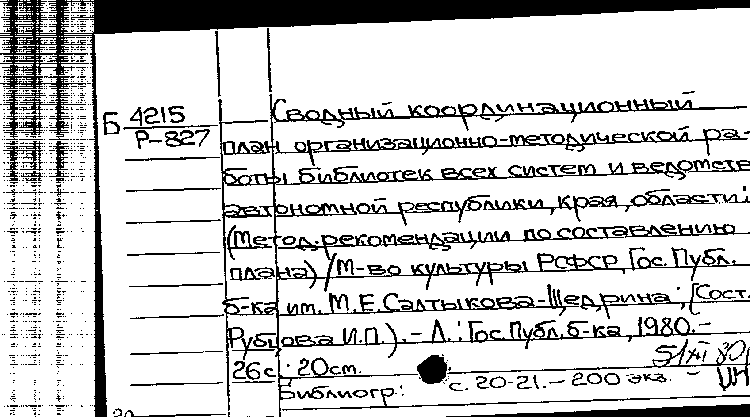 Б 4215
Р-827
Сводный координационный
план организационно-методической ра-
боты библиотек всех систем и ведомств
автономной республики, края, области:
(Метод.рекомендации по составлению
плана) / М-во культуры РСФСР, Гос. Публ.
б-ка им. М.Е.Салтыкова-Щедрина; [Сост.
Рубцова И.П.). – Л.: Гос. Публ. б-ка, 1980. –
26 с.; 20 см.
Библиогр: с. 20-21. – 200 экз. –